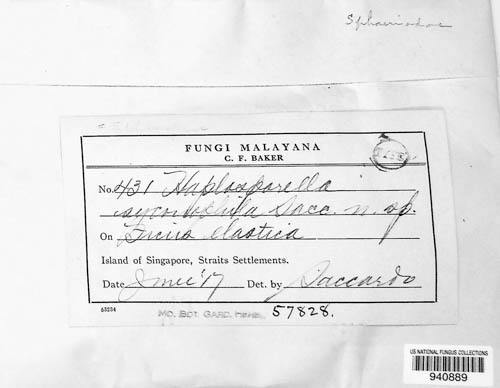 Sphaerioidae
FUNGI MALAYANA
C. F. BAKER
No. 431 Haplosporella
syconophila Sacc. n. sp.
On Ficus elastica
Island of Singapore, Straits Settlements.
Date June '17 Det. by Saccardo
53234
MO. BOT. GARD. HERB. 57828.
US NATIONAL FUNGUS COLLECTIONS
940889